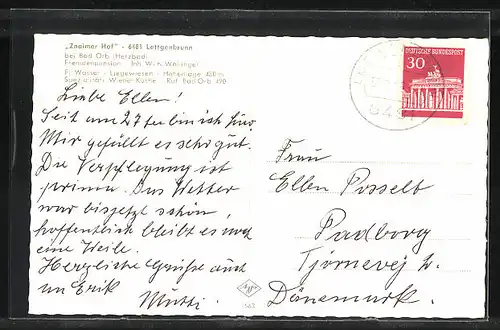 "Znaimer Hof" - 6481 Lettgenbrunn
bei Bad Orb (Herzbad)
Fremdenpension Inh. Wilh. Wolsingr
Fl. Wasser - Liegewiesen - Höhenlage 450 m
Spezialität: Wiener Küche Ruf Bad Orb 490
DEUTSCHE BUNDESPOST
30
6481
Liebe Ellen!
Seit am 27ten bin ich hier.
Mir gefällt es sehr gut.
Die Verpflegung ist
prima. Das Wetter
war bisjetzt schön,
hoffentlich bleibt es noch
eine Weile.
Herzliche Grüße auch
an Erik
Mutti.
Frau
Ellen Posselt
Padborg
Tjørnevej 2.
Dänemark.